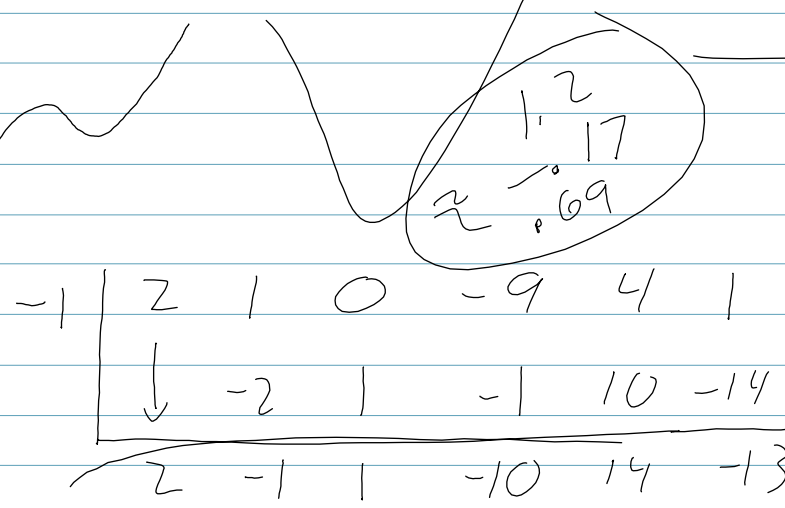 1.2
-.17
≈ .69
-1 | 2 1 0 -9 4 1
↓ -2 1 -1 10 -14
2 -1 1 -10 14 -13